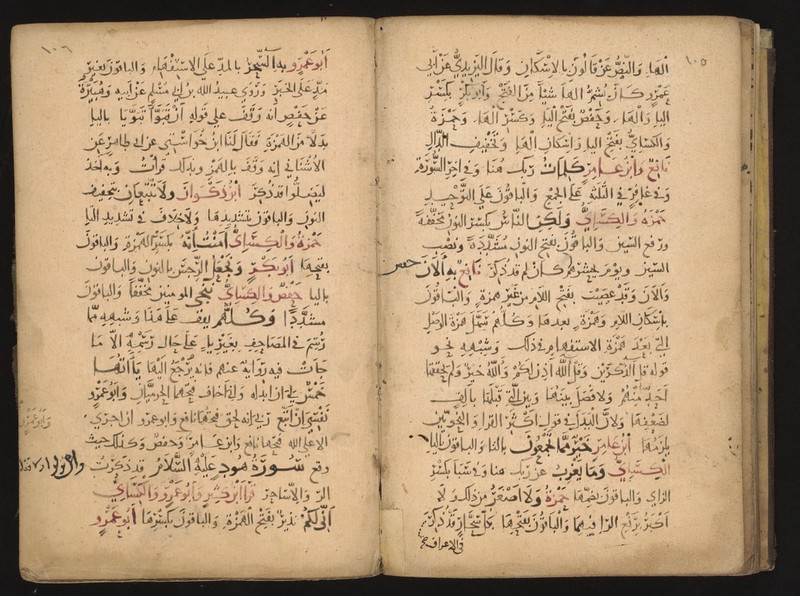 ١٠٥
الهاء والنص عن قالون بالاسكان وقال اليزيدي عن ابي
عمرو كان يشم الهاء شيئا من الفتح وابو بكر بكسر
اليا والهاء وحفص بفتح اليا وكسر الهاء وحمزة
والكسائي بفتح اليا واسكان الها وتخفيف الدال
نافع وابن عامر كلمات ربك هنا وفي اخر السورة
وفي غافر في الثلثة على الجمع والباقون على التوحيد
حمزة والكسائي ولكن الناس بكسر النون مخففة
ورفع السين والباقون بفتح النون مشددة ونصب
السين ويوم يحشرهم كان لم قد ذكر نافع به الان
حفص
والان وقد عصيت بفتح اللام من غير همزة والباقون
باسكان اللام وهمزة بعدها وكلهم سهل همزة الوصل
التي بعد همزة الاستفهام في ذلك وشبهه نحو
قوله قل آلذكرين وقل آلله اذن لكم وآلله خير ولم يحققها
احد منهم ولا فصل بينها وبين التي قبلها بالف
لضعفها ولان البدل في قول اكثر القرا والنحويين
يلزمها ابن عامر خير مما تجمعون بالتا والباقون باليا
الكسائي وما يعزب عن ربك هنا وفي سبا بكسر
الزاي والباقون بضمها حمزة ولا اصغر من ذلك ولا
اكبر برفع الرا فيهما والباقون بفتحها بكل سحار قد ذكر
في الاعراف
١٠٦
ابو عمرو به آلسحر بالمد على الاستفهام والباقون بغير
مد على الخبر وروي عبيد الله بن ابي مسلم عن ابيه وهبيرة
عن حفص انه وقف على قوله ان تبوءا تبويا باليا
بدلا من الهمزة فقال لنا ابن خواستي عن ابي طاهر عن
الاشناني انه وقف بالهمز وبذلك قرات وبه اخذ
ليضلوا قد ذكر ابن ذكوان ولا تتبعان بتخفيف
النون والباقون بتشديدها ولا خلاف في تشديد التا
حمزة والكسائي امنت انه بكسر الهمزة والباقون
بفتحها ابو بكر ونجعل الرجس بالنون والباقون
باليا حفص والكسائي ننجي المومنين مخففا والباقون
مشددا وكلهم يقف على هذا وشبهه مما
رسم في المصاحف بغير يا على حال رسمه الا ما
جات فيه رواية عنهم فانه يرجع اليها ياآتها
خمس لي ان ابدله واني اخاف فتحهما الحرميان وابو عمرو
نفسي ان اتبع ربي انه لحق فتحهما نافع وابو عمرو ان اجري
وابو عمرو
الا على الله فتحها نافع وابن عامر وحفص وكذلك حيث
وقع سورة هود عليه السلام قد ذكرت
الر والا ساحر قرا ابن كثير وابو عمرو والكسائي
اني لكم نذير بفتح الهمزة والباقون بكسرها ابو عمرو